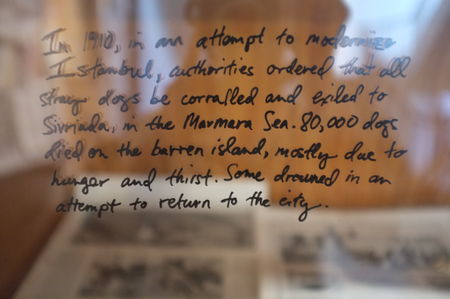 In 1910, in an attempt to modernize
Istanbul, authorities ordered that all
stray dogs be corralled and exiled to
Sivriada, in the Marmara Sea. 80,000 dogs
died on the barren island, mostly due to
hunger and thirst. Some drowned in an
attempt to return to the city.